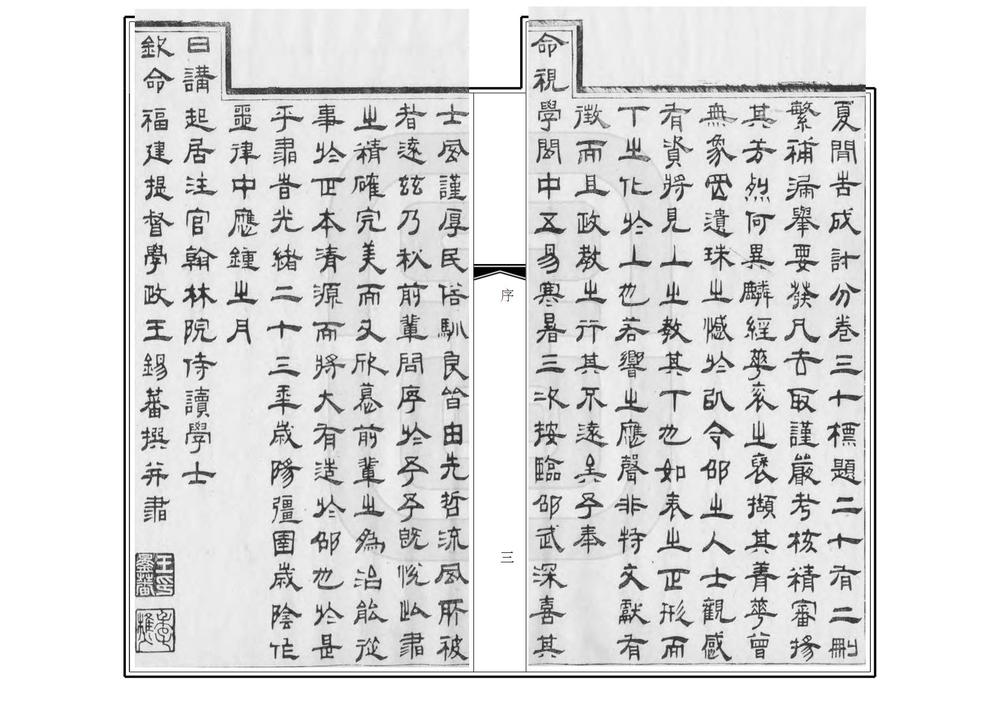 夏閒告成計分卷三十標題二十有二刪
繁補漏舉要發凡去取謹嚴考核精審揚
其芳烈何異麟經華袞之襃擷其菁華曾
無象罔遺珠之憾於以令邵之人士觀感
有資將見上之教其下也如表之正形而
下之化於上也若響之應聲非特文獻有
徵而且政教之行其不遠矣予奉
命視學閩中五易寒暑三次按臨邵武深喜其
序
三
士風謹厚民俗馴良皆由先哲流風所被
者遠茲乃秋前輩問序於予予既悅此書
之精確完美而又欣慕前輩之為治能從
事於正本清源而將大有造於邵也於是
乎書旹光緒二十三年歲陽彊圉歲陰作
噩律中應鍾之月
日講起居注官翰林院侍讀學士
欽命福建提督學政王錫蕃撰并書
王印錫蕃
季樵